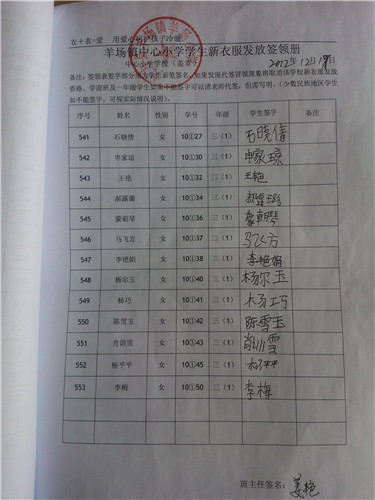 衣+衣=爱 用爱心呵护孩子冷暖
羊场镇中心小学学生新衣服发放签领册
中心小学学校(盖章) 2012年12月19日
备注:签领表签字部分请为学生亲笔签名,如果发现代签冒领现象将取消该学校新衣服发放
资格。学前班及一年级学生如果不能签字可以请老师代签,但需写明。(少数民族地区学生
如不能签字,可视实际情况说明)。
序号 姓名 性别 学号 年级 学生签字 备注
541 石晓倩 女 10①27 三(1) 石晓倩
542 申家琼 女 10①30 三(1) 申家琼
543 王艳 女 10①32 三(1) 王艳
544 郝露璐 女 10①34 三(1) 郝露璐
545 蒙朝琴 女 10①36 三(1) 蒙朝琴
546 马飞方 女 10①37 三(1) 马飞方
547 李艳娟 女 10①38 三(1) 李艳娟
548 杨尔玉 女 10①40 三(1) 杨尔玉
549 杨巧 女 10①41 三(1) 杨巧
550 陈雪玉 女 10①42 三(1) 陈雪玉
551 肖训雪 女 10①43 三(1) 肖训雪
552 杨平平 女 10①45 三(1) 杨平平
553 李梅 女 10①50 三(1) 李梅
班主任签名:姜艳